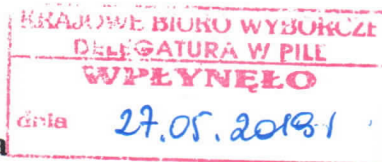 KRAJOWE BIURO WYBORCZE
DELEGATURA W PILE
WPŁYNĘŁO
dnia 27.05.2019